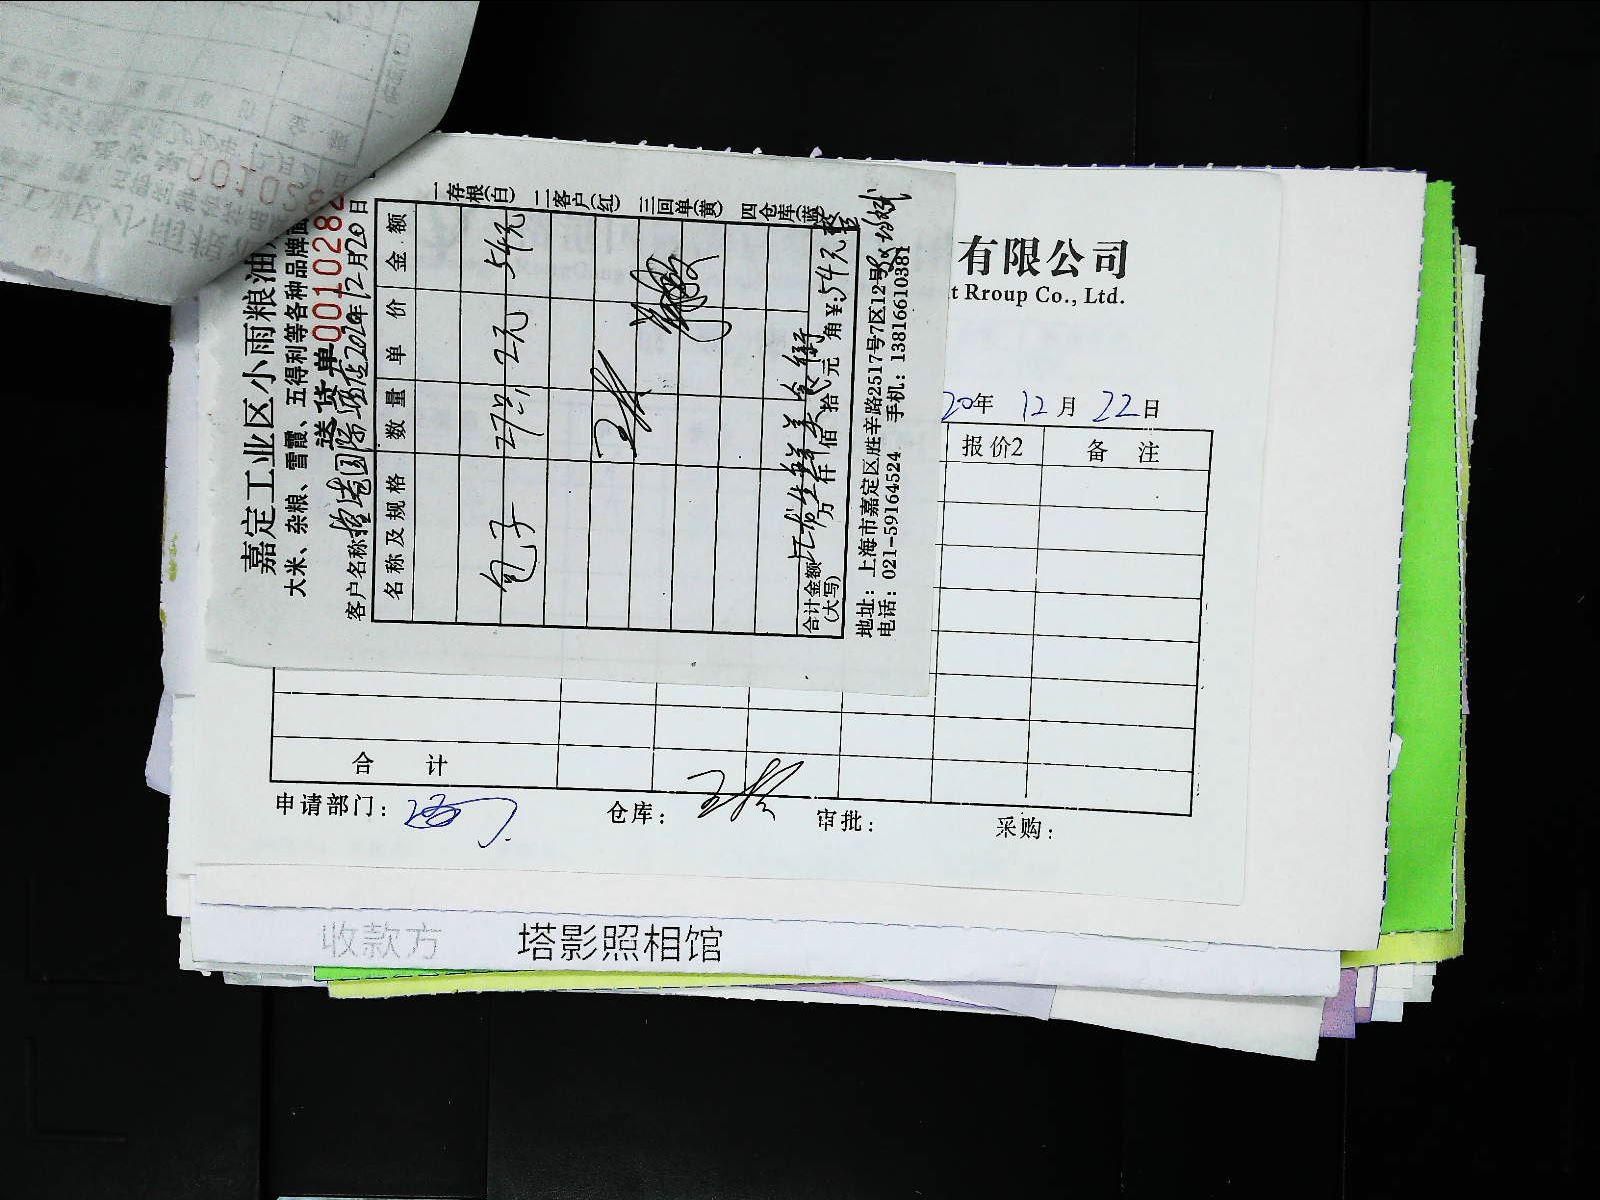 嘉定工业区小雨粮油
大米、杂粮、雷霞、五得利等各种品牌面
送货单 0010282
客户名称 国际酒店 2020年12月20日
名称及规格 数量 单价 金额
包子 27只 2元 54元
王
合计金额(大写) 万 仟 佰 拾 元 角 ¥:54元整
地址：上海市嘉定区胜辛路2517号7区12号
电话：021-59164524 手机：13816610381
一存根(白) 二客户(红) 三回单(黄) 四仓库(蓝)
001028
有限公司
t Rroup Co., Ltd.
20年 12月 22日
报价2 备 注
合 计
申请部门： 仓库： 审批： 采购：
收款方 塔影照相馆